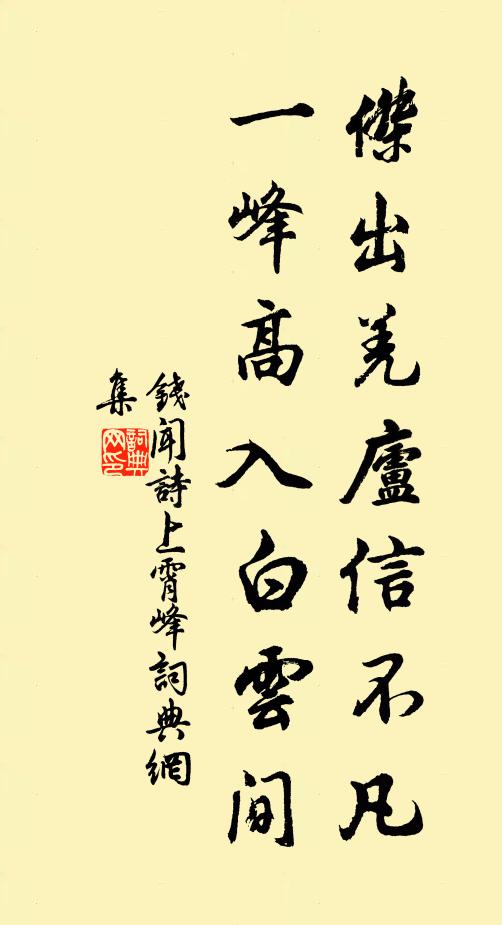 傑出羌廬信不凡
一峰高入白雲間
錢聞詩上霄峰詞典網
集
詞典
网印